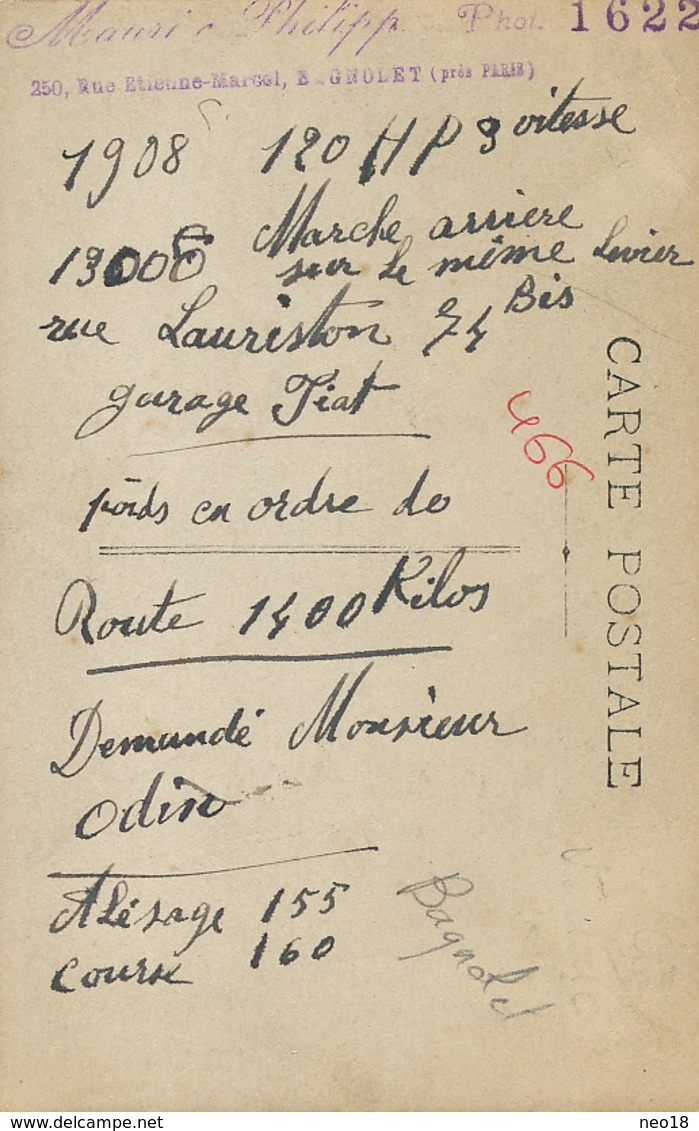 Phot. 1622
250, Rue Etienne-Marcel, BAGNOLET (près PARIS)
1908 120 HP 3 vitesse
Marche arriere
sur le même Levier
rue Lauriston 74 Bis
garage Fiat
466
CARTE POSTALE
poids en ordre de
Route 1400 Kilos
Demandé Monsieur
Odin
Alésage 155
Course 160
Bagnolet
delcampe.net
neo18